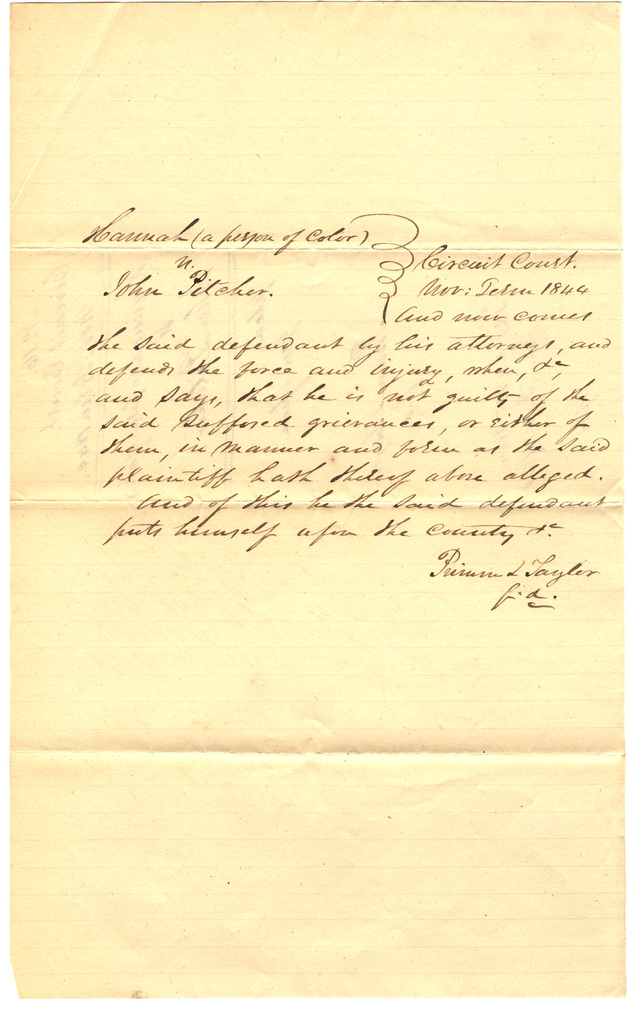 Hannah (a person of Color)
vs.
John Pitcher.
Circuit Court.
Nov: Term 1844
And now comes
the said defendant by his attorneys, and
defends the force and injury, when, &c
and says, that he is not guilty of the
said supposed grievances, or either of
them, in manner and form as the said
plaintiff hath thereof above alleged.
And of this he the said defendant
puts himself upon the county &c
Primm & Taylor
f. d.